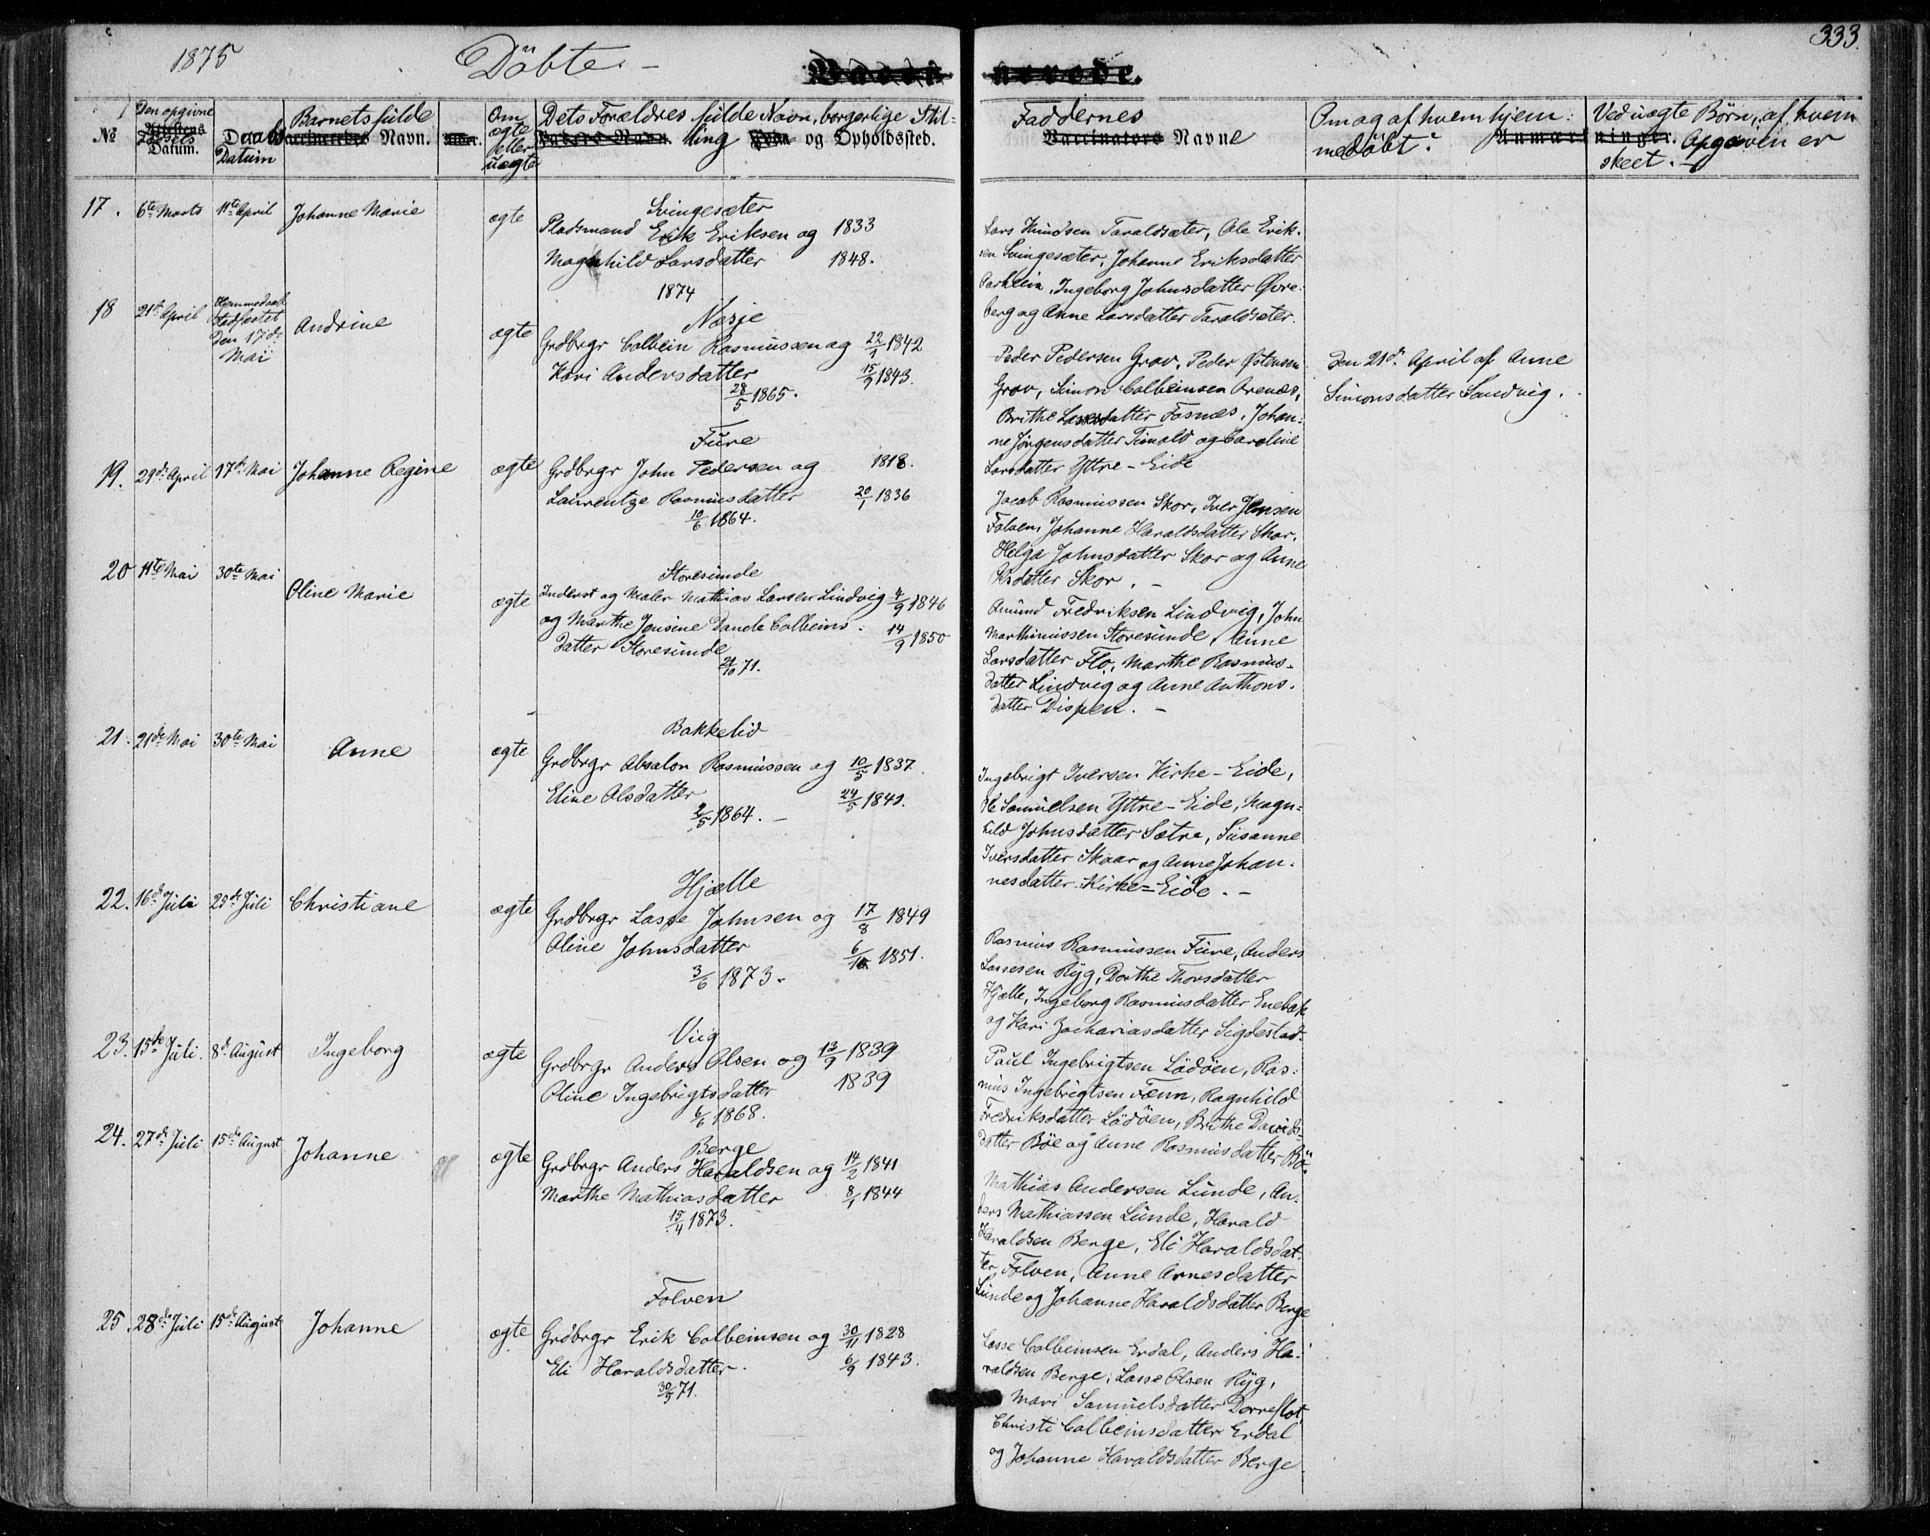 1875
Döbte. –
Vacci
nerede.
333.
№
Den opgivne
Attestens
Födsels
Datum.
Daab
Datum
Barnets fulde
Vaccineredes Navn.
Alder.
Om
ægte
eller
uægte
Dets Forældres fulde Navn, borgerlige Stil-
Faders Navn ling Stilling og Opholdssted.
Faddernes
Vaccinators Navne
Om og af hvem hjem:
medöbt?
Anmærkninger.
Ved uægte Börn, af hvem
Opgaven er
skeet. –
17. 6te Marts 11te April Johanne Marie ægte
Svingesæter
Pladsmand Erik Eriksen og 1833
Magnhild Larsdatter 1848.
1874
Lars Knudsen Taraldsæter, Ole Erik-
sen Svingesæter, Johanne Eriksdatter
Aarheim, Ingeborg Johnsdatter Øvre-
berg og Anne Larsdatter Taraldsæter.
18 21de April Hjemmedaab
Stadfæstet
den 17de
Mai
Andrine ægte
Nesje
Grdbrgr Colbein Rasmussen og 22/1 1842
Kari Andersdatter 15/9 1843.
28/5 1865.
Peder Pedersen Grov, Peder Østensen
Grov, Simon Colbeinsen Arenæs,
Brithe Lassesdatter Fosnæs, Johan-
ne Jörgensdatter Tunold og Caroline
Larsdatter Yttre-Eide
Den 21de April af Anne
Simonsdatter Sandvig.
19. 29de April 17de Mai Johanne Regine ægte
Fure
Grdbrgr John Pedersen og 1818.
Laurentze Rasmusdatter 20/1 1836
10/6 1864.
Jacob Rasmussen Skor, Iver Jensen
Folven, Johanne Haraldsdatter Skor,
Helga Johnsdatter Skor og Anne
datter Skor. –
20 14te Mai 30te Mai Oline Marie ægte
Storesunde
Inderst og Maler Mathias Larsen Lindvig 4/9 1846
og Marthe Jensine Dande Colbeins- 14/9 1850
datter Storesunde
21/10 71.
Amund Fredriksen Lindvig, John
Marthinussen Storesunde, Anne
Larsdatter Flo, Marthe Rasmus-
datter Lindvig og Anne Anthons-
datter Dispen. –
21. 21de Mai 30te Mai Anne ægte
Bakkelid
Grdbrgr Absalon Rasmussen og 10/5 1837.
Eline Olsdatter 24/5 1841.
2/5 1864. –
Ingebrigt Iversen Kirke-Eide,
Ole Samuelsen Yttre-Eide, Magn-
hild Johnsdatter Sætre, Susanne
Iversdatter Skaar og Anne Johan-
nesdatter Kirke-Eide. –
22. 16de Juli 25de Juli Christiane ægte
Hjælle
Grdbrgr Lasse Johnsen og 17/8 1849
Oline Johnsdatter 6/10 1851.
3/6 1873.
Rasmus Rasmussen Fure, Anders
Lassesen Ryg, Dorthe Thorsdatter
Hjelle, Ingeborg Rasmusdatter Enebak
og Kari Zachariasdatter Sigdestad.
23. 15de Juli. 8de August Ingeborg ægte
Viig
Grdbrgr Anders Olsen og 13/9 1839
Oline Ingebrigtsdatter 1839
6/6 1868.
Paul Ingebrigtsen Lödöen, Ras-
mus Ingebrigtsen Fænn, Ragnhild
Fredriksdatter Lödöen, Brithe Davids-
datter Böe og Anne Rasmusdatter Bö.
24. 27de Juli 15de August Johanne ægte
Berge
Grdbrgr Anders Haraldsen og 14/2 1841
Marthe Mathiasdatter 8/1 1844
15/4 1873.
Mathias Andersen Lunde, An-
ders Mathiassen Lunde, Harald
Haraldsen Berge, Eli Haraldsdat-
ter Folven, Anne Arnesdatter
Lunde og Johanne Haraldsdatter Berge
25. 28de Juli 15de August Johanne ægte
Folven
Grdbrgr Erik Colbeinsen og 30/11 1828
Eli Haraldsdatter. 6/9 1843.
30/3 71.
Lasse Colbeinsen Erdal, Anders Ha-
raldsen Berge, Lasse Olsen Ryg,
Mari Samuelsdatter Dorreflot,
Christi Colbeinsdatter Erdal
og Johanne Haraldsdatter Berge